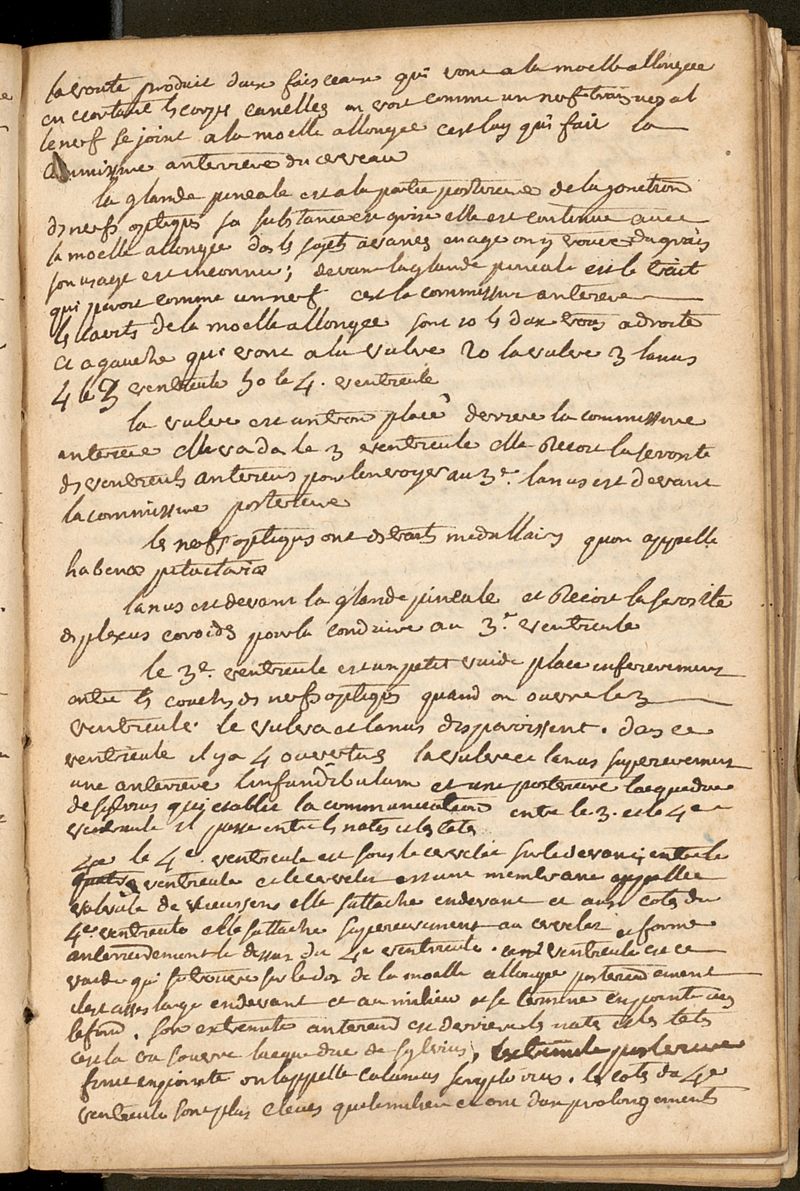 la voute produit deux faisceaux qui vont a la moelle allongee
en ecartant ls corps canelles on voit comme un nerf transversal
le nerf se joint a la moelle allongee cest luy qui fait la
commissure anterieure du cerveau
la glande pineale est a la partie posterieure de la jonction
ds nerfs optiques sa substance est grise elle est continue avec
la moelle allongee das ls sujets avancs en age on y trouve du gravie
son usage est inconnu ; devant la glande pineale est le trait
qui paroit comme un nerf cest la commissure anterieure
ls cavits de la moelle allongee sont 1o ls deux trous a droite
et a gauche qui vont a la vulve 2o la vulve 3 lanus
4 le 3 ventricule 5o le 4. ventricule
la vulve est un trou place derriere la commissure
anterieure elle va da le 3 ventricule elle Recoit la serosite
ds ventriculs anterieurs pour lenvoyer au 3e. lanus est devant
la commissure posterieure
les nerfs optiques ont ds traits medullairs quon appelle
habenæ pituitariæ
lanus est devant la glande pineale et Recoit la serosite
ds plexus coroids pour la conduire au 3e. ventricule
le 3e. ventricule est un petit vuide place inferieurement
entre ls couchs ds nerfs optiqus quand on ouvre le 3
ventricule. le vulva et lanus disparoissent. das ce
ventricule il y a 4 ouverturs la vulve et lanus superieurement
une anterieure linfundibulum et une posterieure laqueduc
de sylvius qui etablit la communication entre le 3. et le 4e
ventricule il passe entre ls nates et ls tets
4e le 4e. ventricule est sous le cervelet sur le devant, entre le
ventricule et le cervelet est une membrane appellee
valvule de vieussens elle sattache en devant et aux cots du
4e. ventricule elle sattache superieurement au cervelet et forme
anterieurement le dessus du 4e ventricule. ventricule est ce
vuide qui se trouve sur le dos de la moelle allongee posterieurement
il est asses large en devant et au milieu et se termine en pointe vers
le fond. son extremite anterieure est derriere ls nates et ls tets
cest la ou souvre laqueduc de sylvius, lextremite posterieure
finit en pointe on lappelle calamus scryptorius. ls cots du 4e
ventricule sont plus eleves que le milieu et ont deux prolongements